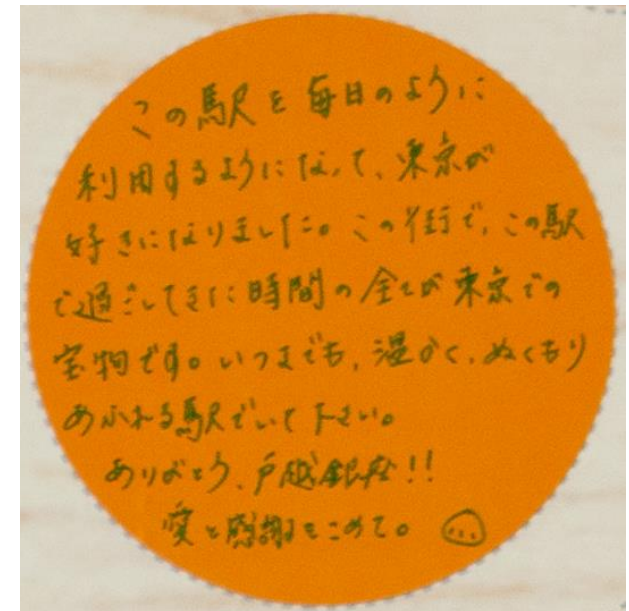 この駅を毎日のように
利用するようになって、東京が
好きになりました。この街で、この駅
で過ごしてきた時間の全てが東京での
宝物です。いつまでも、温かく、ぬくもり
あふれる駅でいて下さい。
ありがとう、戸越銀座!!
愛と感謝をこめて。